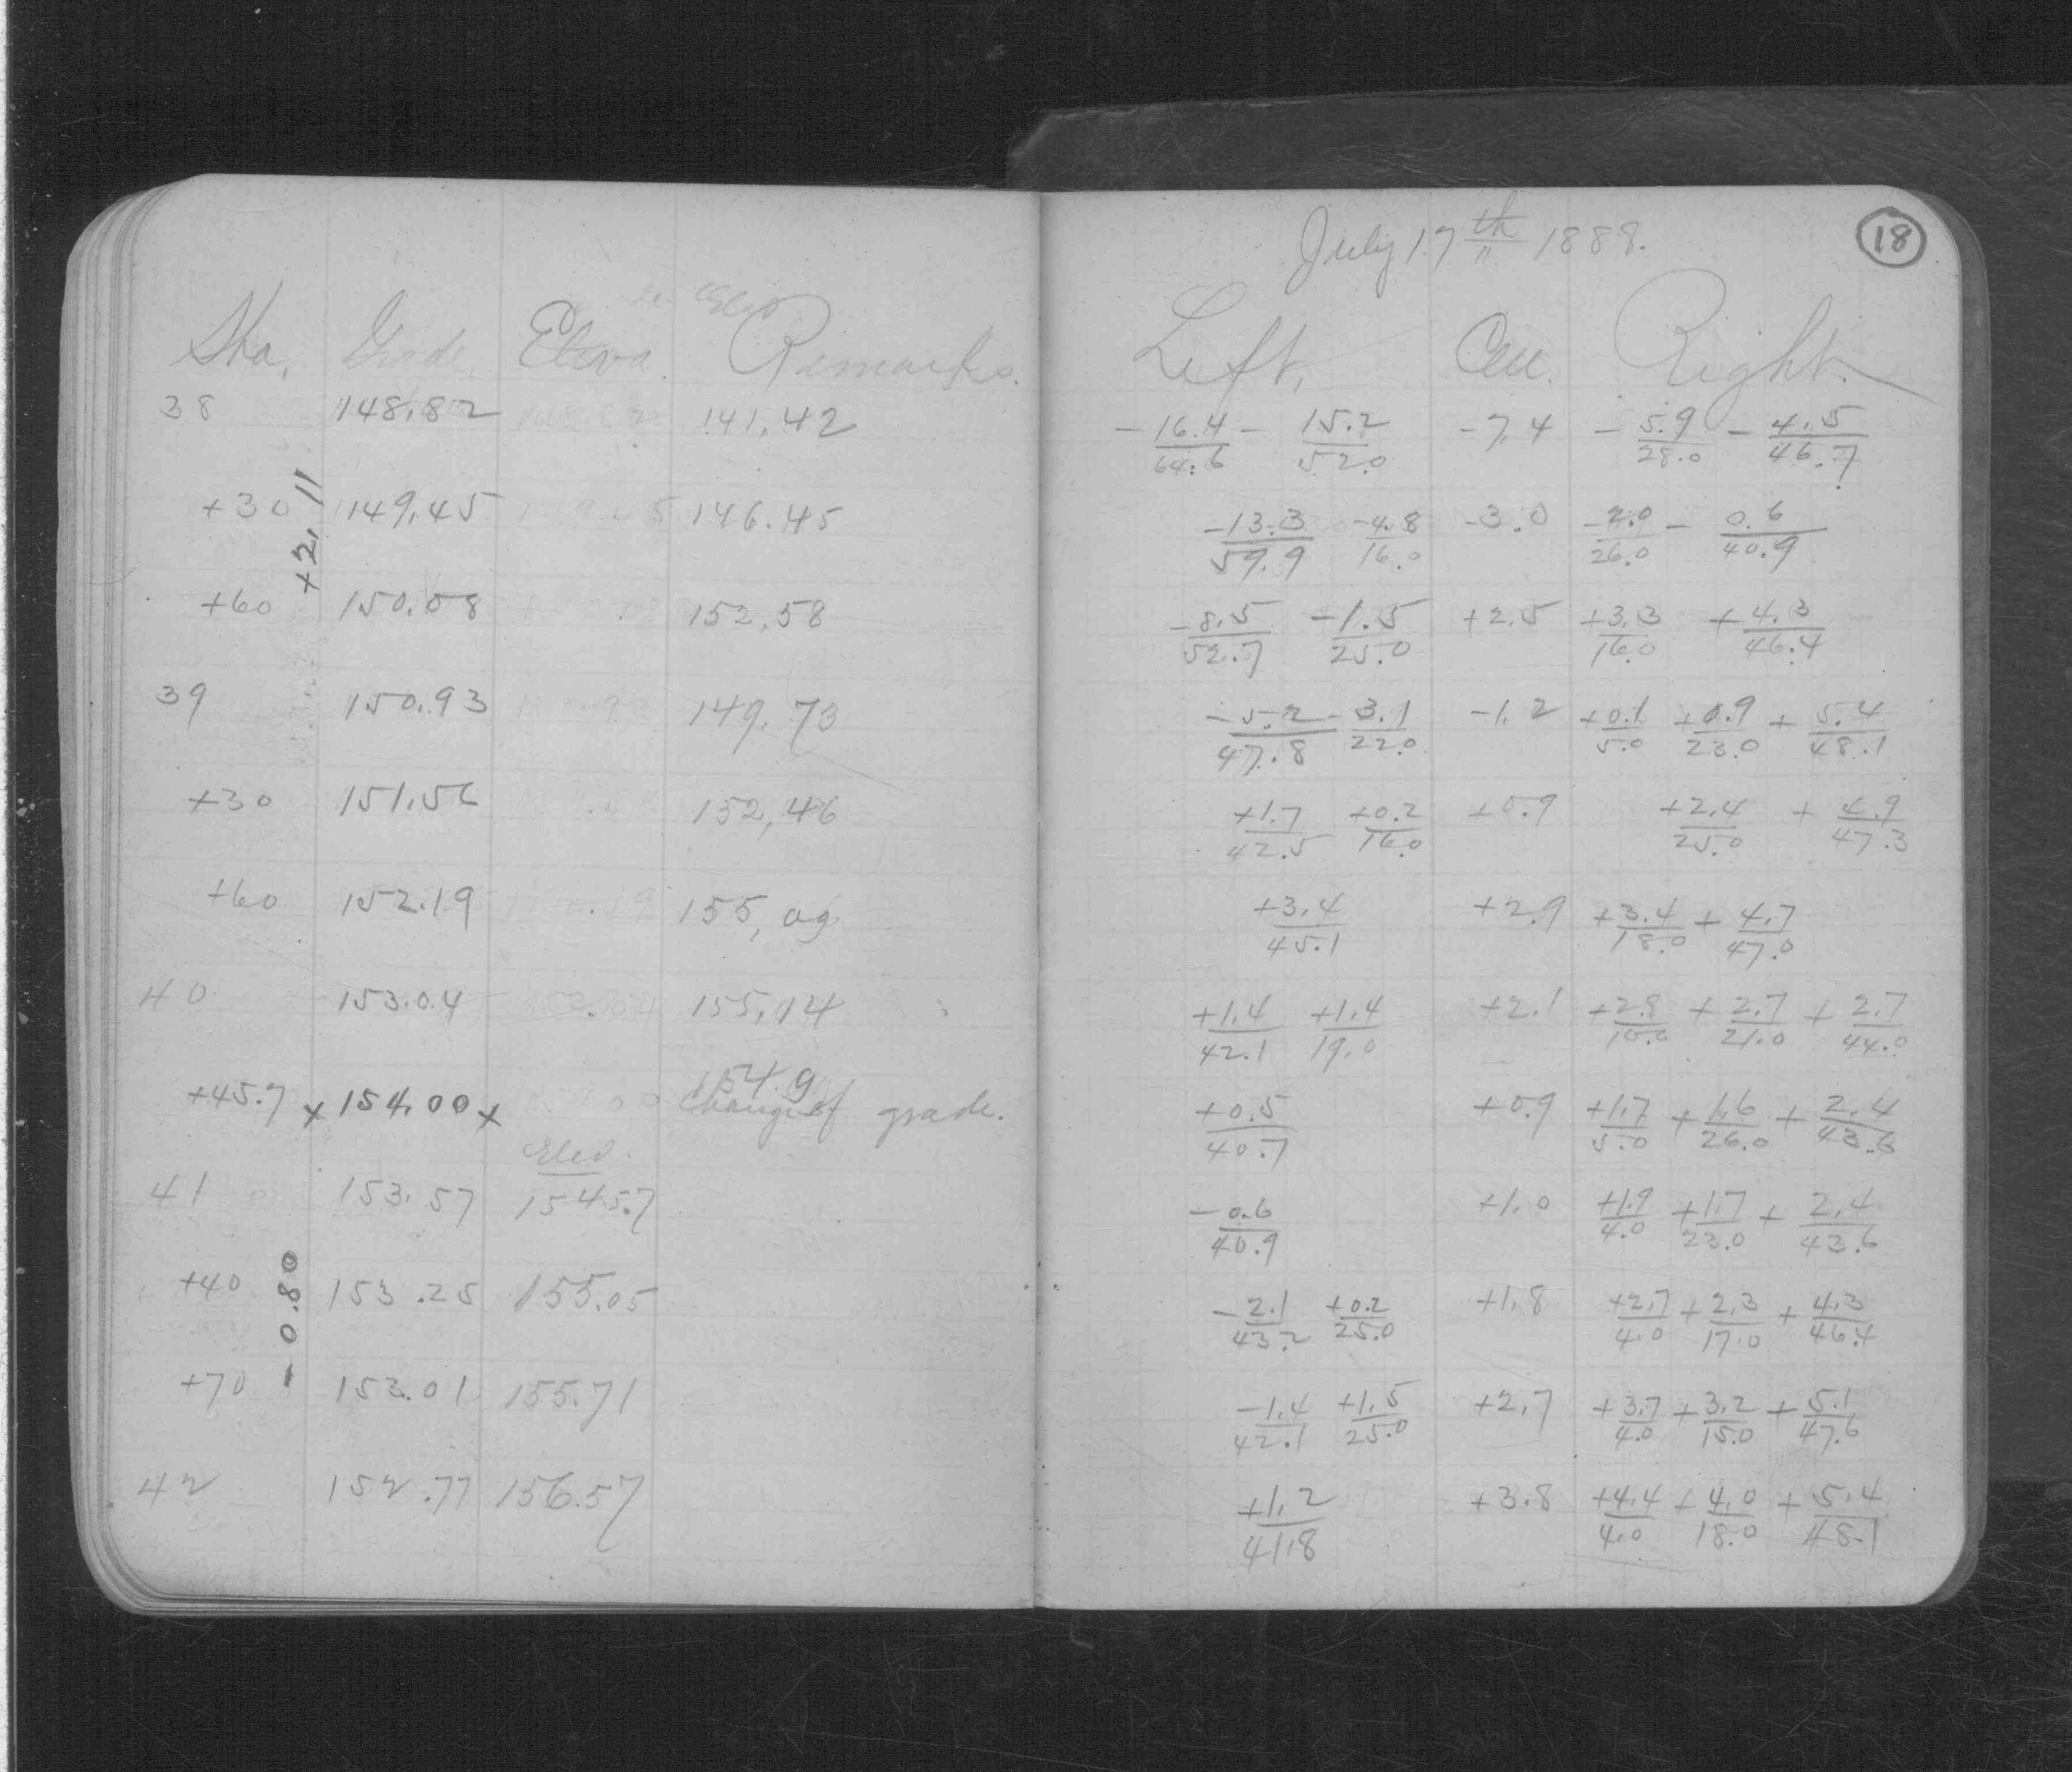 Sta. Grade Eleva. Remarks.
Elev
38 148.82 141.42
+30 149.45 146.45
+2.11
+60 150.08 152.58
39 150.93 149.73
+30 151.56 152,46
+60 152.19 155,09
40 153.04 155,14
154.9
+45.7 x 154.00 x Change of grade.
Elev.
41 153.57 154.57
+40 153.25 155.05
- 0.80
+70 153.01 155.71
42 152.77 156.57
July 17th 1888.
18
Left. Cen. Right.
- 16.4/64.6 - 15.2/52.0 -7.4 - 5.9/28.0 - 4.5/46.7
-13.3/59.9 -4.8/16.0 -3.0 -2.0/26.0 - 0.6/40.9
-8.5/52.7 -1.5/25.0 +2.5 +3.3/16.0 +4.3/46.4
-5.2/47.8 -3.1/22.0 -1.2 +0.1/5.0 +0.9/23.0 + 5.4/48.1
+1.7/42.5 +0.2/16.0 +0.9 +2.4/25.0 + 4.9/47.3
+3.4/45.1 +2.9 +3.4/18.0 + 4.7/47.0
+1.4/42.1 +1.4/19.0 +2.1 +2.8/15.0 + 2.7/21.0 + 2.7/44.0
+0.5/40.7 +0.9 +1.7/5.0 + 1.6/26.0 + 2.4/43.6
-0.6/40.9 +1.0 +1.9/4.0 +1.7/23.0 + 2.4/43.6
-2.1/43.2 +0.2/25.0 +1.8 +2.7/4.0 + 2.3/17.0 + 4.3/46.4
-1.4/42.1 +1.5/25.0 +2.7 +3.7/4.0 + 3.2/15.0 + 5.1/47.6
+1.2/41.8 +3.8 +4.4/4.0 + 4.0/18.0 + 5.4/48.1